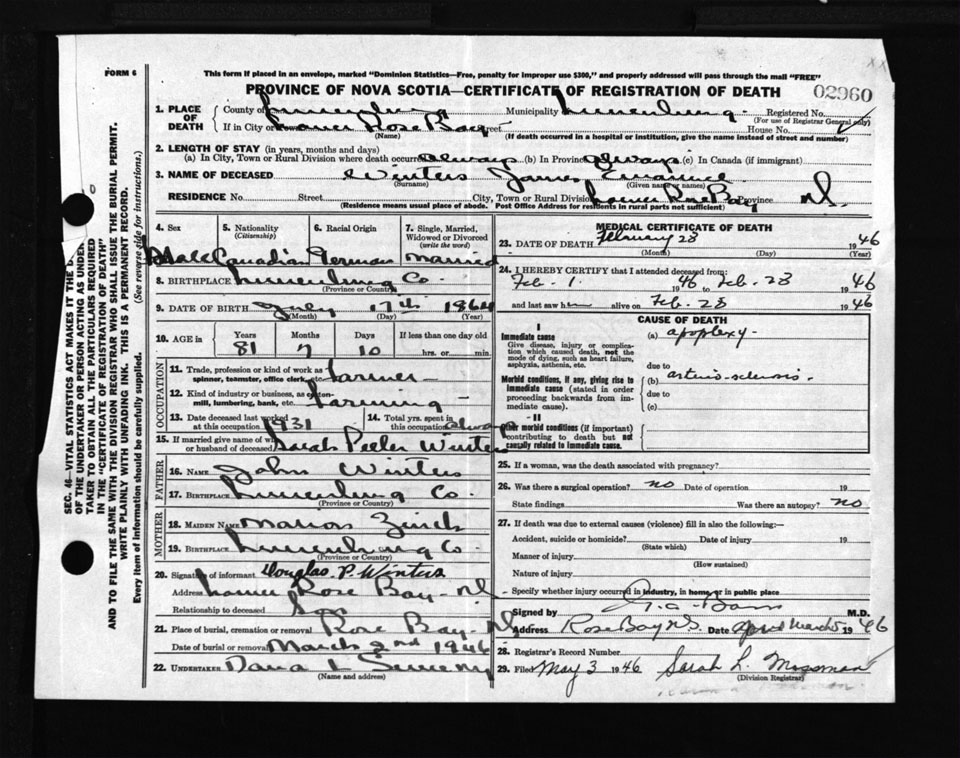 FORM 6
This form if placed in an envelope, marked "Dominion Statistics—Free, penalty for improper use $300," and properly addressed will pass through the mail "FREE"
PROVINCE OF NOVA SCOTIA—CERTIFICATE OF REGISTRATION OF DEATH
02960
1. PLACE OF DEATH
County of Lunenburg Municipality Lunenburg Registered No.
(For use of Registrar General only)
If in City or Lower Rose Bay Street House No.
(Name) (If death occurred in a hospital or institution, give the name instead of street and number)
2. LENGTH OF STAY (in years, months and days)
(a) In City, Town or Rural Division where death occurred always (b) In Province always (c) In Canada (if immigrant)
3. NAME OF DECEASED Winters James
(Surname) (Given name or names)
RESIDENCE No. Street City, Town or Rural Division Lower Rose Bay Province N.S.
(Residence means usual place of abode. Post Office Address for residents in rural parts not sufficient)
4. Sex 5. Nationality (Citizenship) 6. Racial Origin 7. Single, Married, Widowed or Divorced (write the word)
Male Canadian German Married
8. BIRTHPLACE Lunenburg Co.
(Province or Country)
9. DATE OF BIRTH July 17th 1864
(Month) (Day) (Year)
10. AGE in Years Months Days If less than one day
81 7 10 hrs. or min.
OCCUPATION
11. Trade, profession or kind of work as spinner, teamster, office clerk, Farmer
12. Kind of industry or business, as cotton-mill, lumbering, bank, etc. Farming
13. Date deceased last worked at this occupation 1931 14. Total yrs. spent in this occupation always
15. If married give name of wife or husband of deceased Sarah Peeler Winters
FATHER
16. NAME John Winters
17. BIRTHPLACE Lunenburg Co.
(Province or Country)
MOTHER
18. MAIDEN NAME Zinck
19. BIRTHPLACE Lunenburg Co.
(Province or Country)
20. Signature of informant Douglas P. Winters
Address Lower Rose Bay N.S.
Relationship to deceased Son
21. Place of burial, cremation or removal Rose Bay N.S.
Date of burial or removal March 2nd 1946
22. UNDERTAKER Dana L Sweeny
(Name and address)
MEDICAL CERTIFICATE OF DEATH
23. DATE OF DEATH February 28 1946
(Month) (Day) (Year)
24. I HEREBY CERTIFY that I attended deceased from:
Feb. 1 1946 to Feb. 28 1946
and last saw him alive on Feb. 28 1946
CAUSE OF DEATH
I
Immediate cause (a) apoplexy
Give disease, injury or complication which caused death, not the mode of dying, such as heart failure, asphyxia, asthenia, etc.
due to
Morbid conditions, if any, giving rise to immediate cause (stated in order proceeding backwards from immediate cause).
(b) arterio-sclerosis
due to
(c)
II
Other morbid conditions (if important) contributing to death but not causally related to immediate cause.
25. If a woman, was the death associated with pregnancy?
26. Was there a surgical operation? no Date of operation 19
State findings Was there an autopsy? no
27. If death was due to external causes (violence) fill in also the following:—
Accident, suicide or homicide? Date of injury 19
(State which)
Manner of injury
(How sustained)
Nature of injury
Specify whether injury occurred in industry, in home, or in public place
Signed by M.D.
Address Rose Bay N.S. Date March 5 1946
28. Registrar's Record Number
29. Filed May 3 1946 Sarah L. Mossman
(Division Registrar)
SEC. 46—VITAL STATISTICS ACT MAKES IT THE
OF THE UNDERTAKER OR PERSON ACTING AS UNDER
TAKER TO OBTAIN ALL THE PARTICULARS REQUIRED
IN THE "CERTIFICATE OF REGISTRATION OF DEATH"
AND TO FILE THE SAME WITH THE DIVISION REGISTRAR WHO SHALL ISSUE THE BURIAL PERMIT.
WRITE PLAINLY WITH UNFADING INK. THIS IS A PERMANENT RECORD.
Every item of information should be carefully supplied. (See reverse side for instructions.)